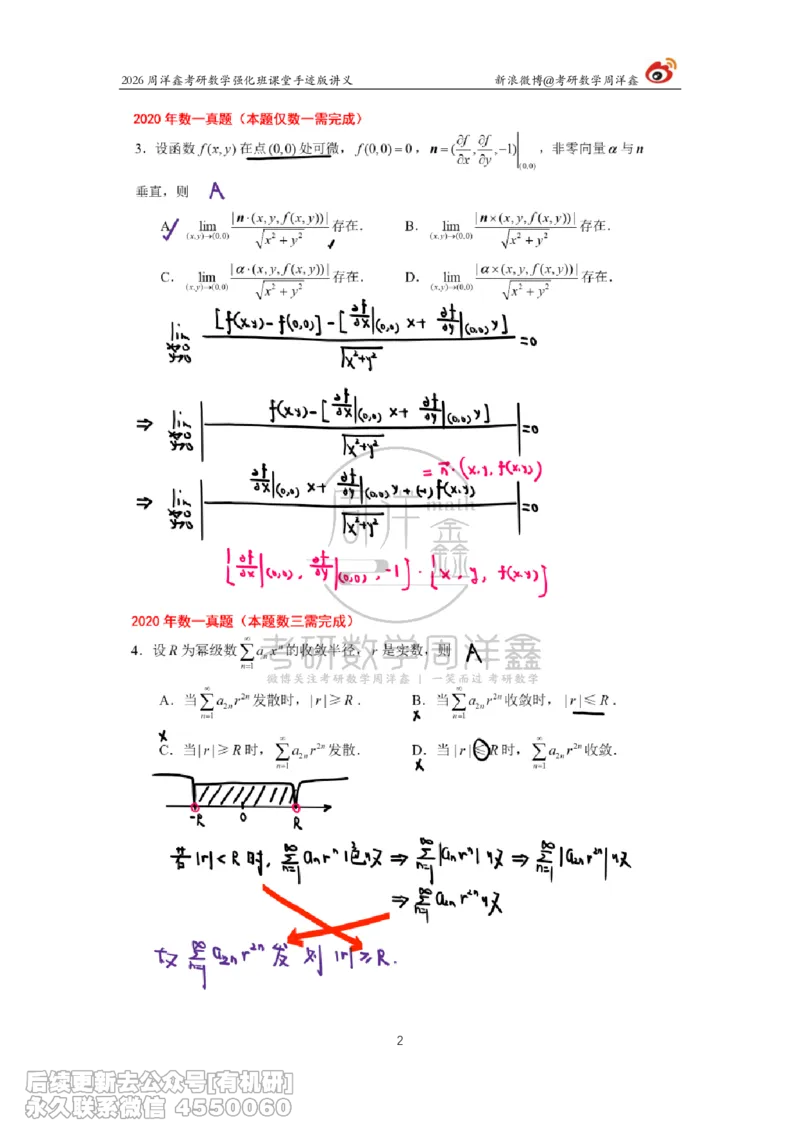 2026 周洋鑫考研数学强化班课堂手迹版讲义 新浪微博@考研数学周洋鑫
2020 年数一真题（本题仅数一需完成）
3. 设函数 f(x,y) 在点(0,0) 处可微，f(0,0)=0，n=(∂f/∂x, ∂f/∂y, -1)|(0,0)，非零向量 α 与 n
垂直，则 A
A. lim (x,y)→(0,0) |n·(x,y,f(x,y))| / √(x²+y²) 存在. B. lim (x,y)→(0,0) |n×(x,y,f(x,y))| / √(x²+y²) 存在.
C. lim (x,y)→(0,0) |α·(x,y,f(x,y))| / √(x²+y²) 存在. D. lim (x,y)→(0,0) |α×(x,y,f(x,y))| / √(x²+y²) 存在.
lim x→0 y→0 [f(x,y)-f(0,0)]-[∂f/∂x|(0,0) x+ ∂f/∂y|(0,0) y] / √(x²+y²) =0
⇒ lim x→0 y→0 | f(x,y)-[∂f/∂x|(0,0) x+ ∂f/∂y|(0,0) y] / √(x²+y²) | =0
= n·(x,y,f(x,y))
⇒ lim x→0 y→0 | ∂f/∂x|(0,0) x+ ∂f/∂y|(0,0) y+(-1)f(x,y) / √(x²+y²) | =0
[∂f/∂x|(0,0), ∂f/∂y|(0,0), -1]·[x, y, f(x,y)]
周洋鑫
math
2020 年数一真题（本题数三需完成）
考研数学周洋鑫
4. 设 R 为幂级数 ∑(n=1→∞) aₙxⁿ 的收敛半径，r 是实数，则 A
微博关注考研数学周洋鑫 | 一笑而过 考研数学
A. 当 ∑(n=1→∞) a₂ₙr²ⁿ 发散时，|r|≥R. B. 当 ∑(n=1→∞) a₂ₙr²ⁿ 收敛时，|r|≤R.
C. 当|r|≥R时，∑(n=1→∞) a₂ₙr²ⁿ 发散. D. 当|r|≤R时，∑(n=1→∞) a₂ₙr²ⁿ 收敛.
-R 0 R
若|r|<R时, ∑(n=1→∞) aₙrⁿ 绝收 ⇒ ∑(n=1→∞) |aₙrⁿ| 收 ⇒ ∑(n=1→∞) |a₂ₙr²ⁿ| 收
⇒ ∑(n=1→∞) a₂ₙr²ⁿ 收
故 ∑(n=1→∞) a₂ₙr²ⁿ 发 则 |r|≥R.
2
后续更新去公众号[有机研]
永久联系微信 4550060